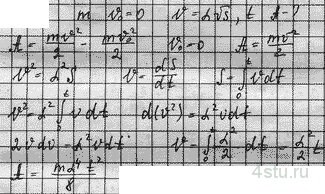 m v₀=0 v=α√s, t A-?
A = mv²/2 - mv₀²/2 v₀=0 A = mv²/2
v² = α²S v = dS/dt S = ∫₀ᵗ v dt
v² = α² ∫₀ᵗ v dt d(v²) = α² v dt
2v dv = α² v dt v = ∫₀ᵗ α²/2 dt = α²/2 t
A = mα⁴t²/8
4stu.ru